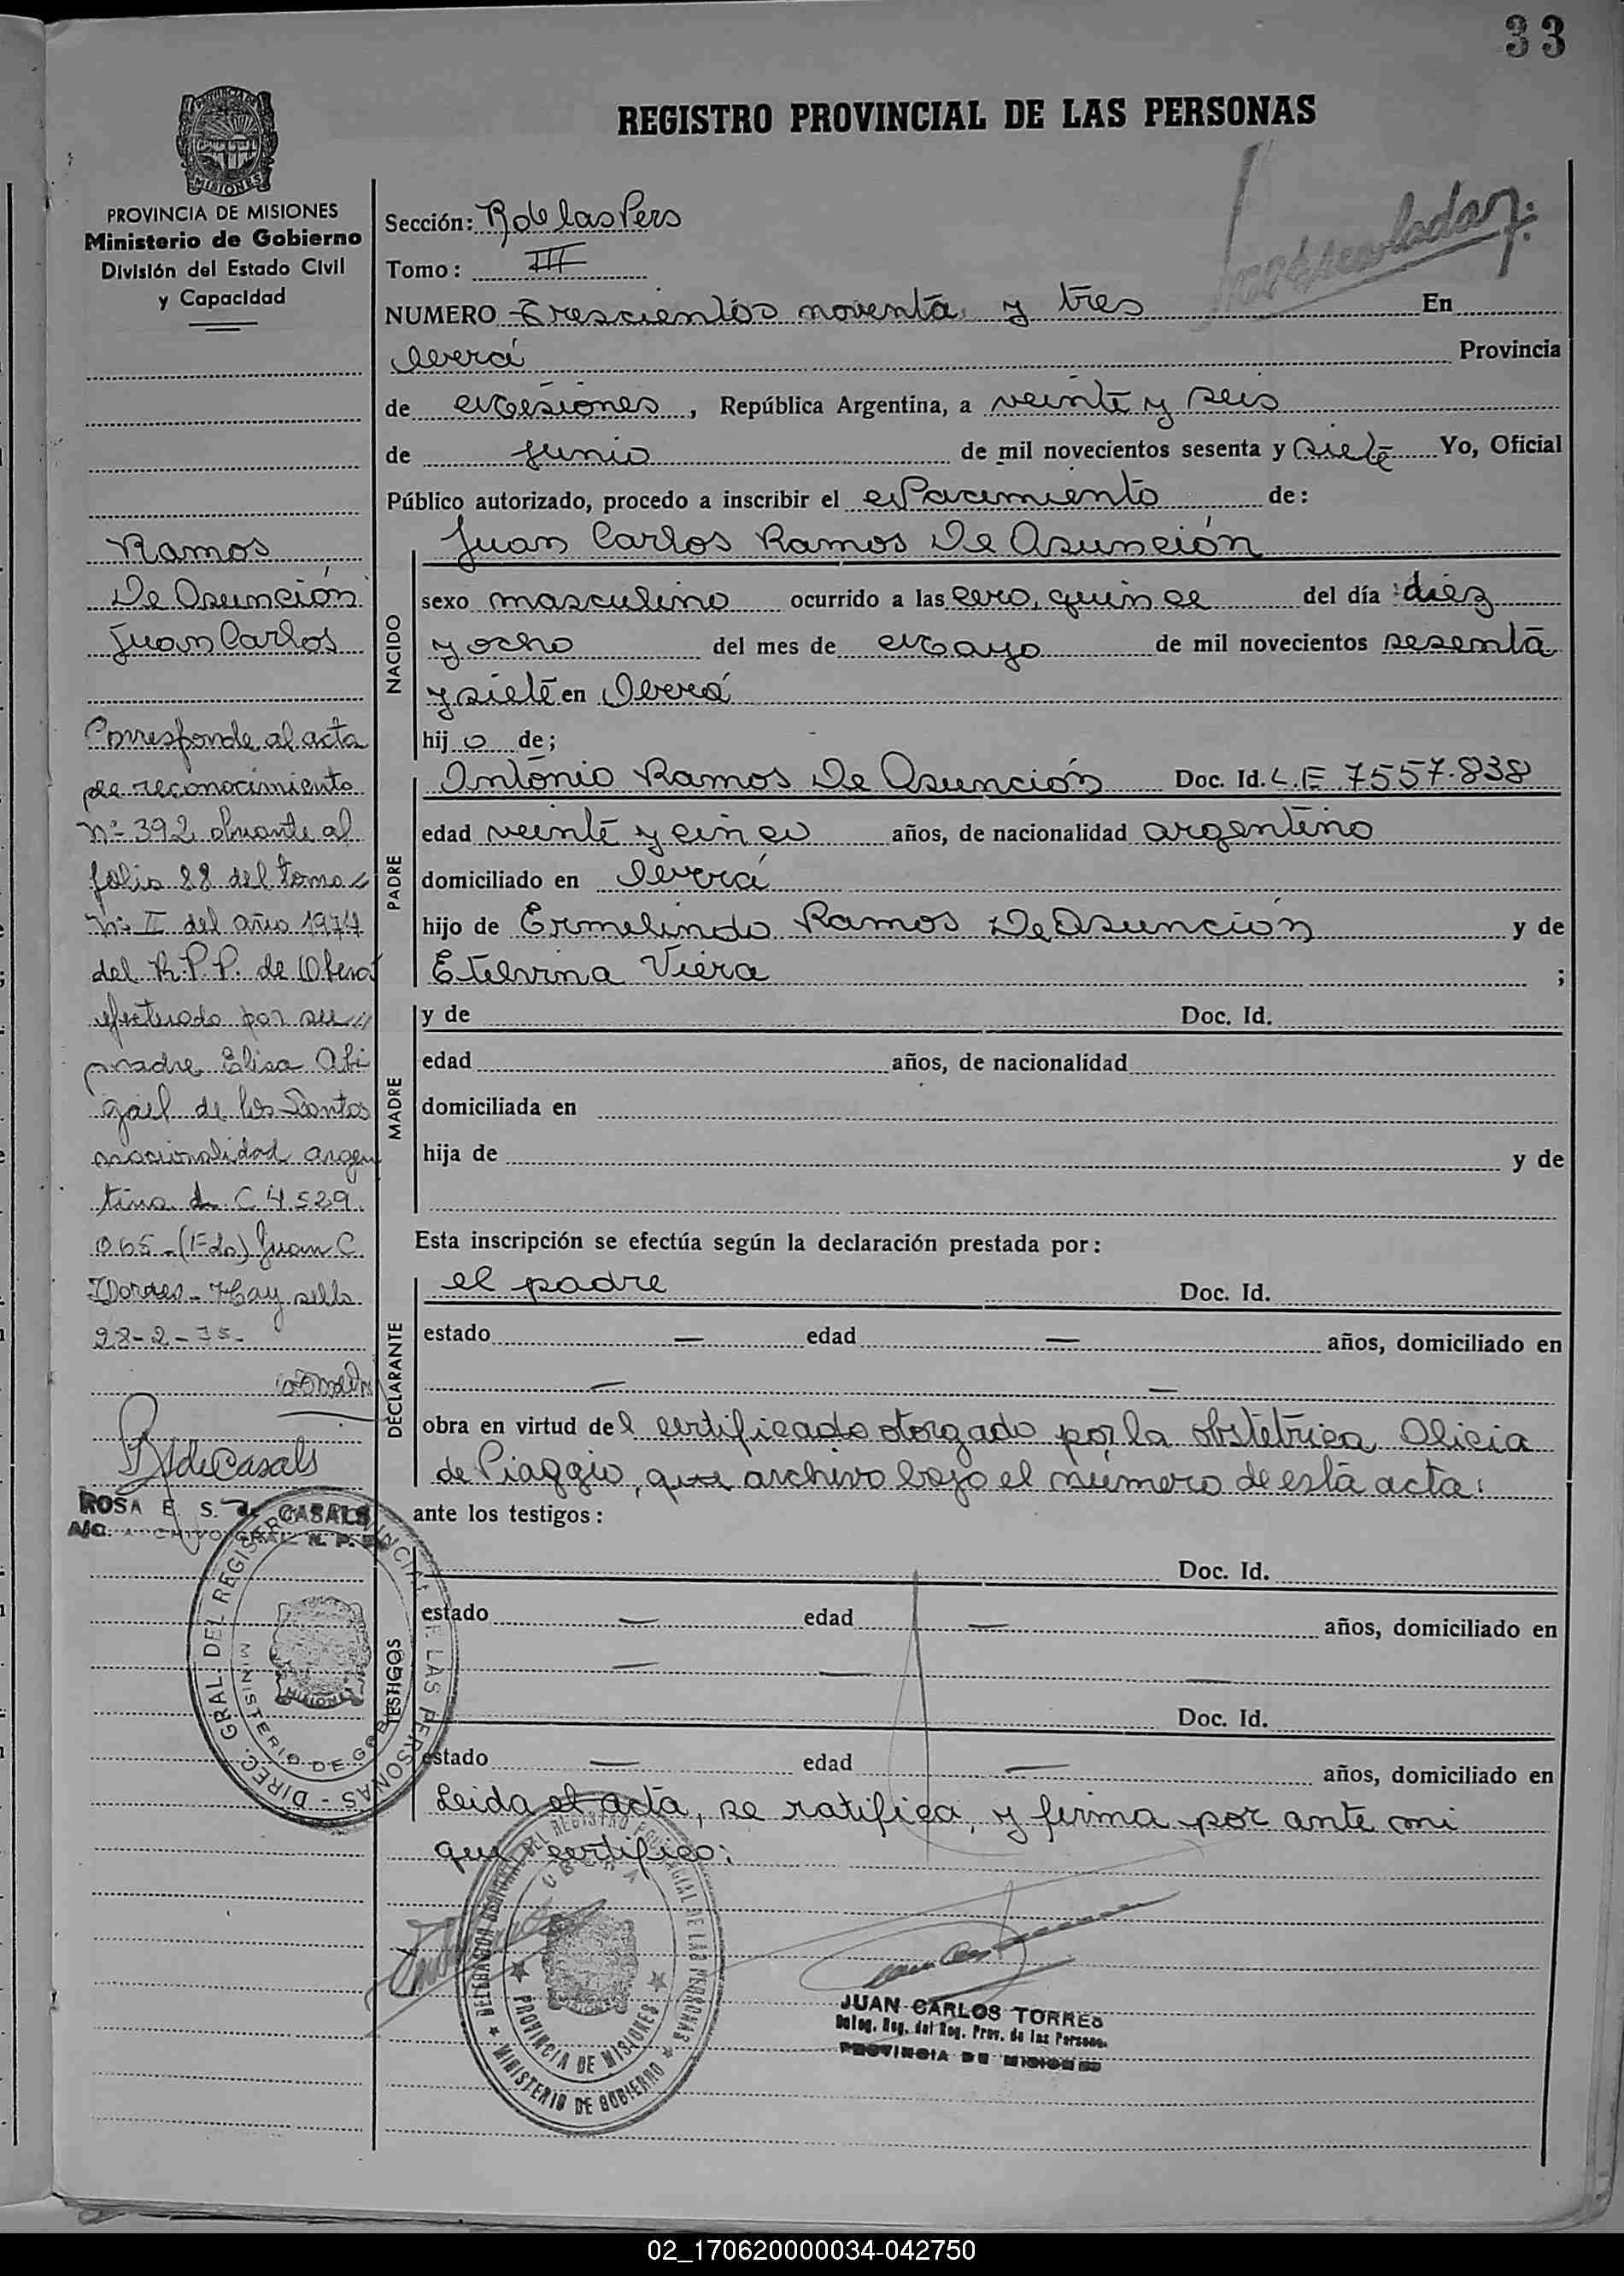 33
REGISTRO PROVINCIAL DE LAS PERSONAS
PROVINCIA DE MISIONES
Ministerio de Gobierno
División del Estado Civil
y Capacidad
Ramos
De Asunción
Juan Carlos
Corresponde al acta
de reconocimiento
Nº 392 obrante al
folio 88 del tomo
Nº II del año 1974
del R.P.P. de Oberá
efectuado por su
madre Elisa Abi
gail de los Santos
nacionalidad argen
tina L.C 4.529.
065 - (Fdo) Juan C.
Hay sello
28-2-75-
ROSA E. S. de CASALS
A/C. ARCHIVO GRAL. R. P. P.
DIREC. GRAL. DEL REGISTRO PROVINCIAL DE LAS PERSONAS -
MINISTERIO DE GOB
MISIONES
Sección: R de las Pers
Tomo: III
NUMERO Trescientos noventa y tres En
Oberá Provincia
de Misiones, República Argentina, a veinte y seis
de junio de mil novecientos sesenta y siete Yo, Oficial
Público autorizado, procedo a inscribir el Nacimiento de:
NACIDO
Juan Carlos Ramos De Asunción
sexo masculino ocurrido a las cero, quince del día diez
y ocho del mes de Mayo de mil novecientos sesenta
y siete en Oberá
hijo de;
PADRE
Antonio Ramos De Asunción Doc. Id. L.E 7557.838
edad veinte y cinco años, de nacionalidad argentino
domiciliado en Oberá
hijo de Ermelindo Ramos De Asunción y de
Etelvina Viera ;
MADRE
y de Doc. Id.
edad años, de nacionalidad
domiciliada en
hija de y de
Esta inscripción se efectúa según la declaración prestada por:
DECLARANTE
el padre Doc. Id.
estado — edad — años, domiciliado en
— —
obra en virtud del certificado otorgado por la obstetrica Alicia
de Piaggio, que archivo bajo el número de esta acta:
ante los testigos:
TESTIGOS
Doc. Id.
estado — edad — años, domiciliado en
— — —
Doc. Id.
estado — edad — años, domiciliado en
Leida el acta, se ratifica, y firma por ante mi
que certifico:
DELEGACION REGIONAL DEL REGISTRO PROVINCIAL DE LAS PERSONAS
OBERA
PROVINCIA DE MISIONES
MINISTERIO DE GOBIERNO
JUAN CARLOS TORRES
Deleg. Reg. del Reg. Prov. de las Personas
PROVINCIA DE MISIONES
02_170620000034-042750